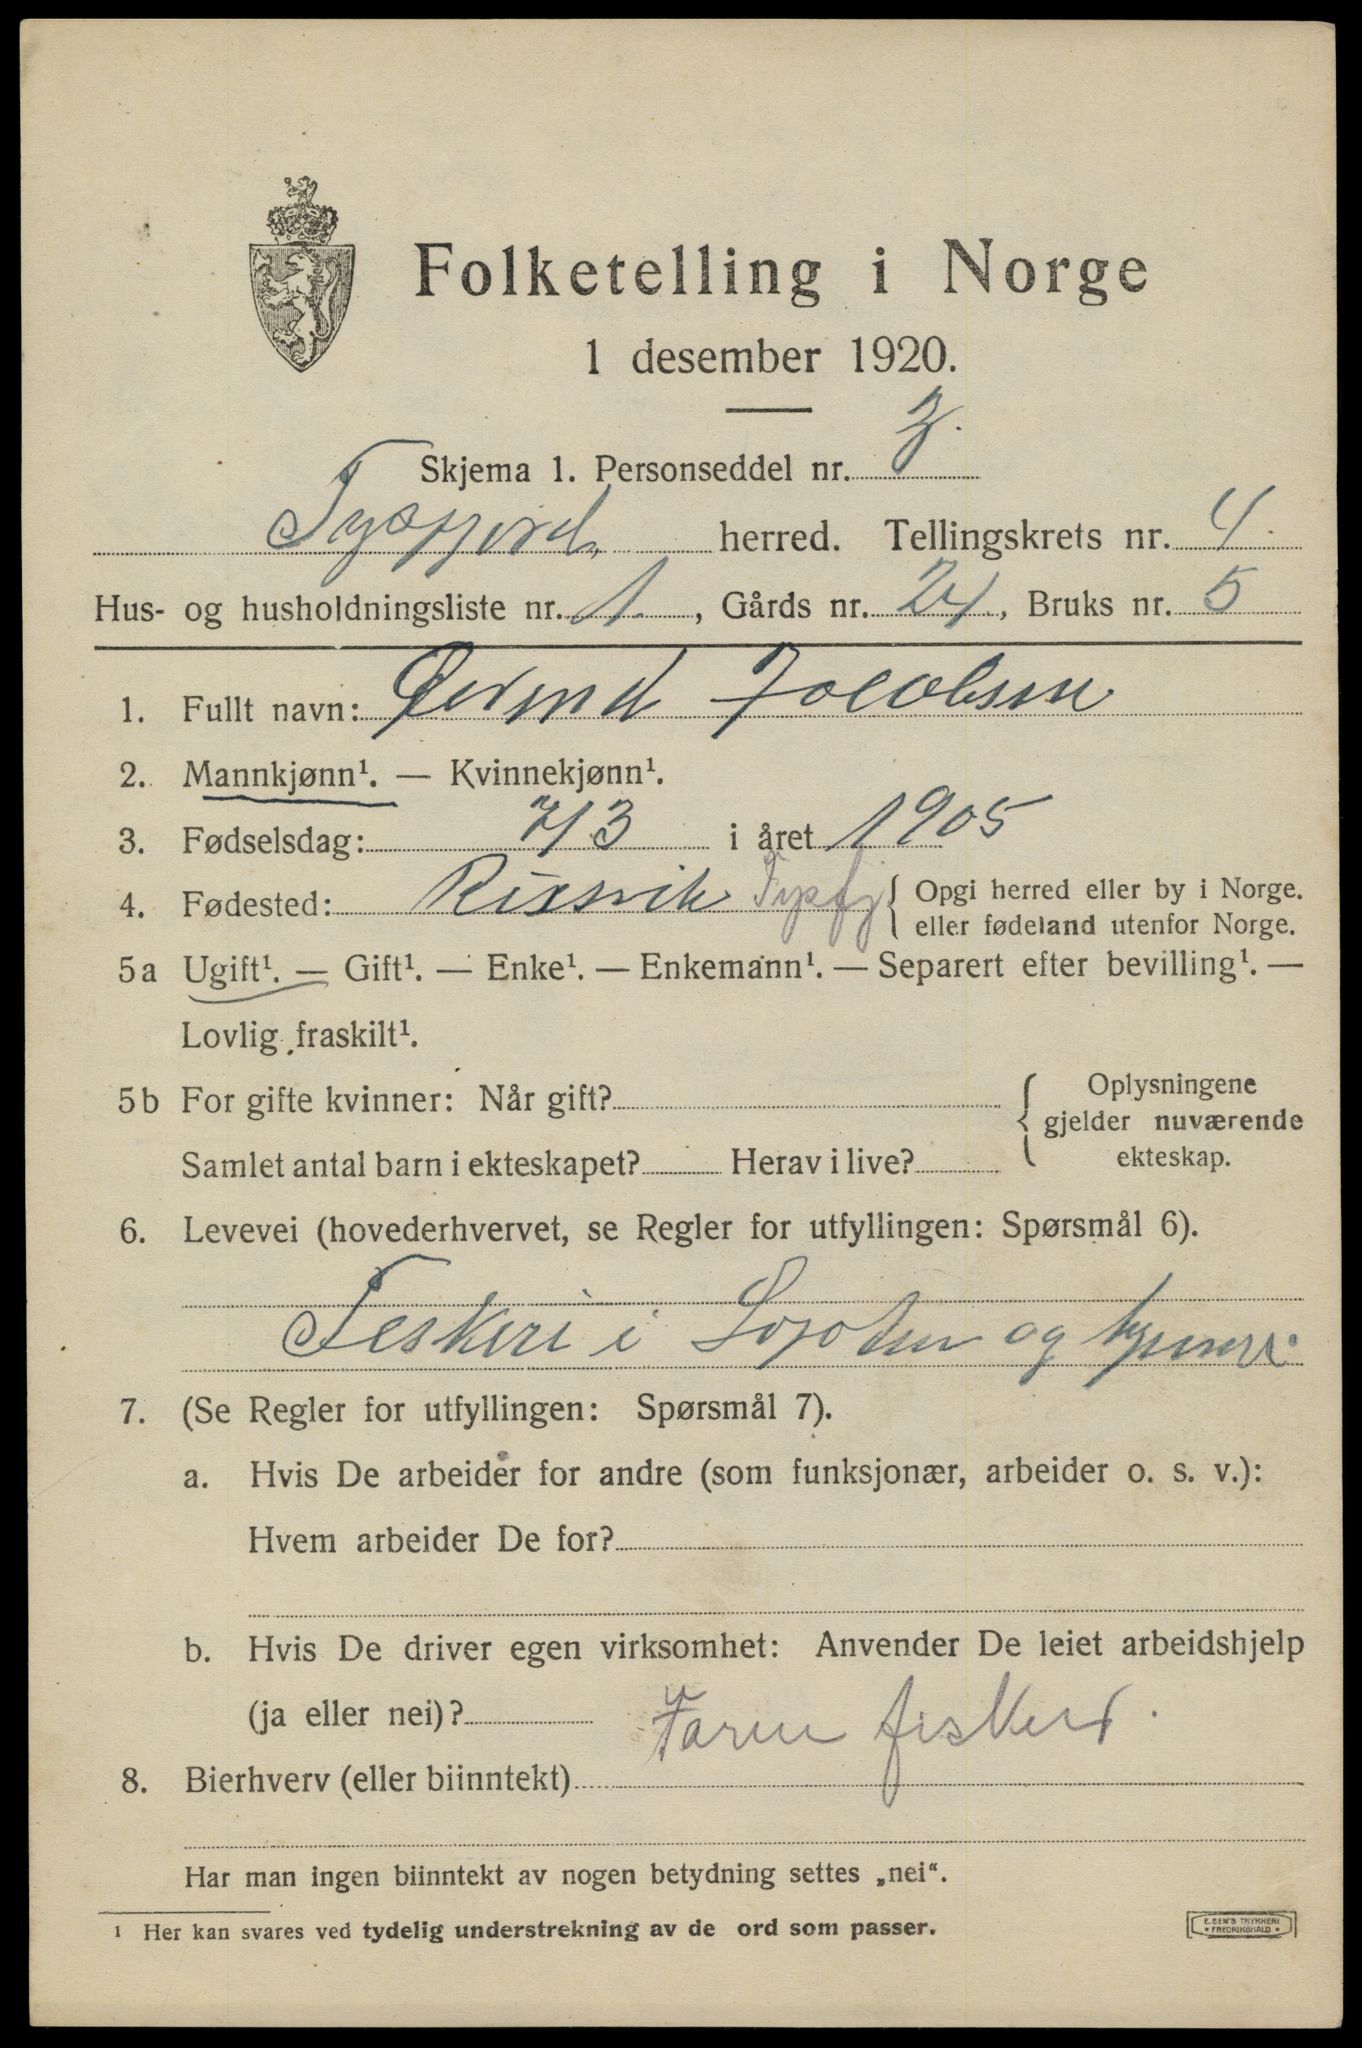 Folketelling i Norge
1 desember 1920.
Skjema 1. Personseddel nr. 3.
Tysfjord herred. Tellingskrets nr. 4
Hus- og husholdningsliste nr. 1. , Gårds nr. 24, Bruks nr. 5
1. Fullt navn: Øivind Jacobsen
2. Mannkjønn¹. — Kvinnekjønn¹.
3. Fødselsdag: 7/3 i året 1905
4. Fødested: Tysfj { Opgi herred eller by i Norge.
eller fødeland utenfor Norge.
5a Ugift¹. — Gift¹. — Enke¹. — Enkemann¹. — Separert efter bevilling¹. —
Lovlig fraskilt¹.
5b For gifte kvinner: Når gift? { Oplysningene
gjelder nuværende
Samlet antal barn i ekteskapet? Herav i live? ekteskap.
6. Levevei (hovederhvervet, se Regler for utfyllingen: Spørsmål 6).
Feskeri i Lofoten og hjemme.
7. (Se Regler for utfyllingen: Spørsmål 7).
a. Hvis De arbeider for andre (som funksjonær, arbeider o. s. v.):
Hvem arbeider De for?
b. Hvis De driver egen virksomhet: Anvender De leiet arbeidshjelp
(ja eller nei)? Faren fisker.
8. Bierhverv (eller biinntekt)
Har man ingen biinntekt av nogen betydning settes „nei“.
¹ Her kan svares ved tydelig understrekning av de ord som passer.
E. SEM'S TRYKKERI
* FREDRIKSHALD *